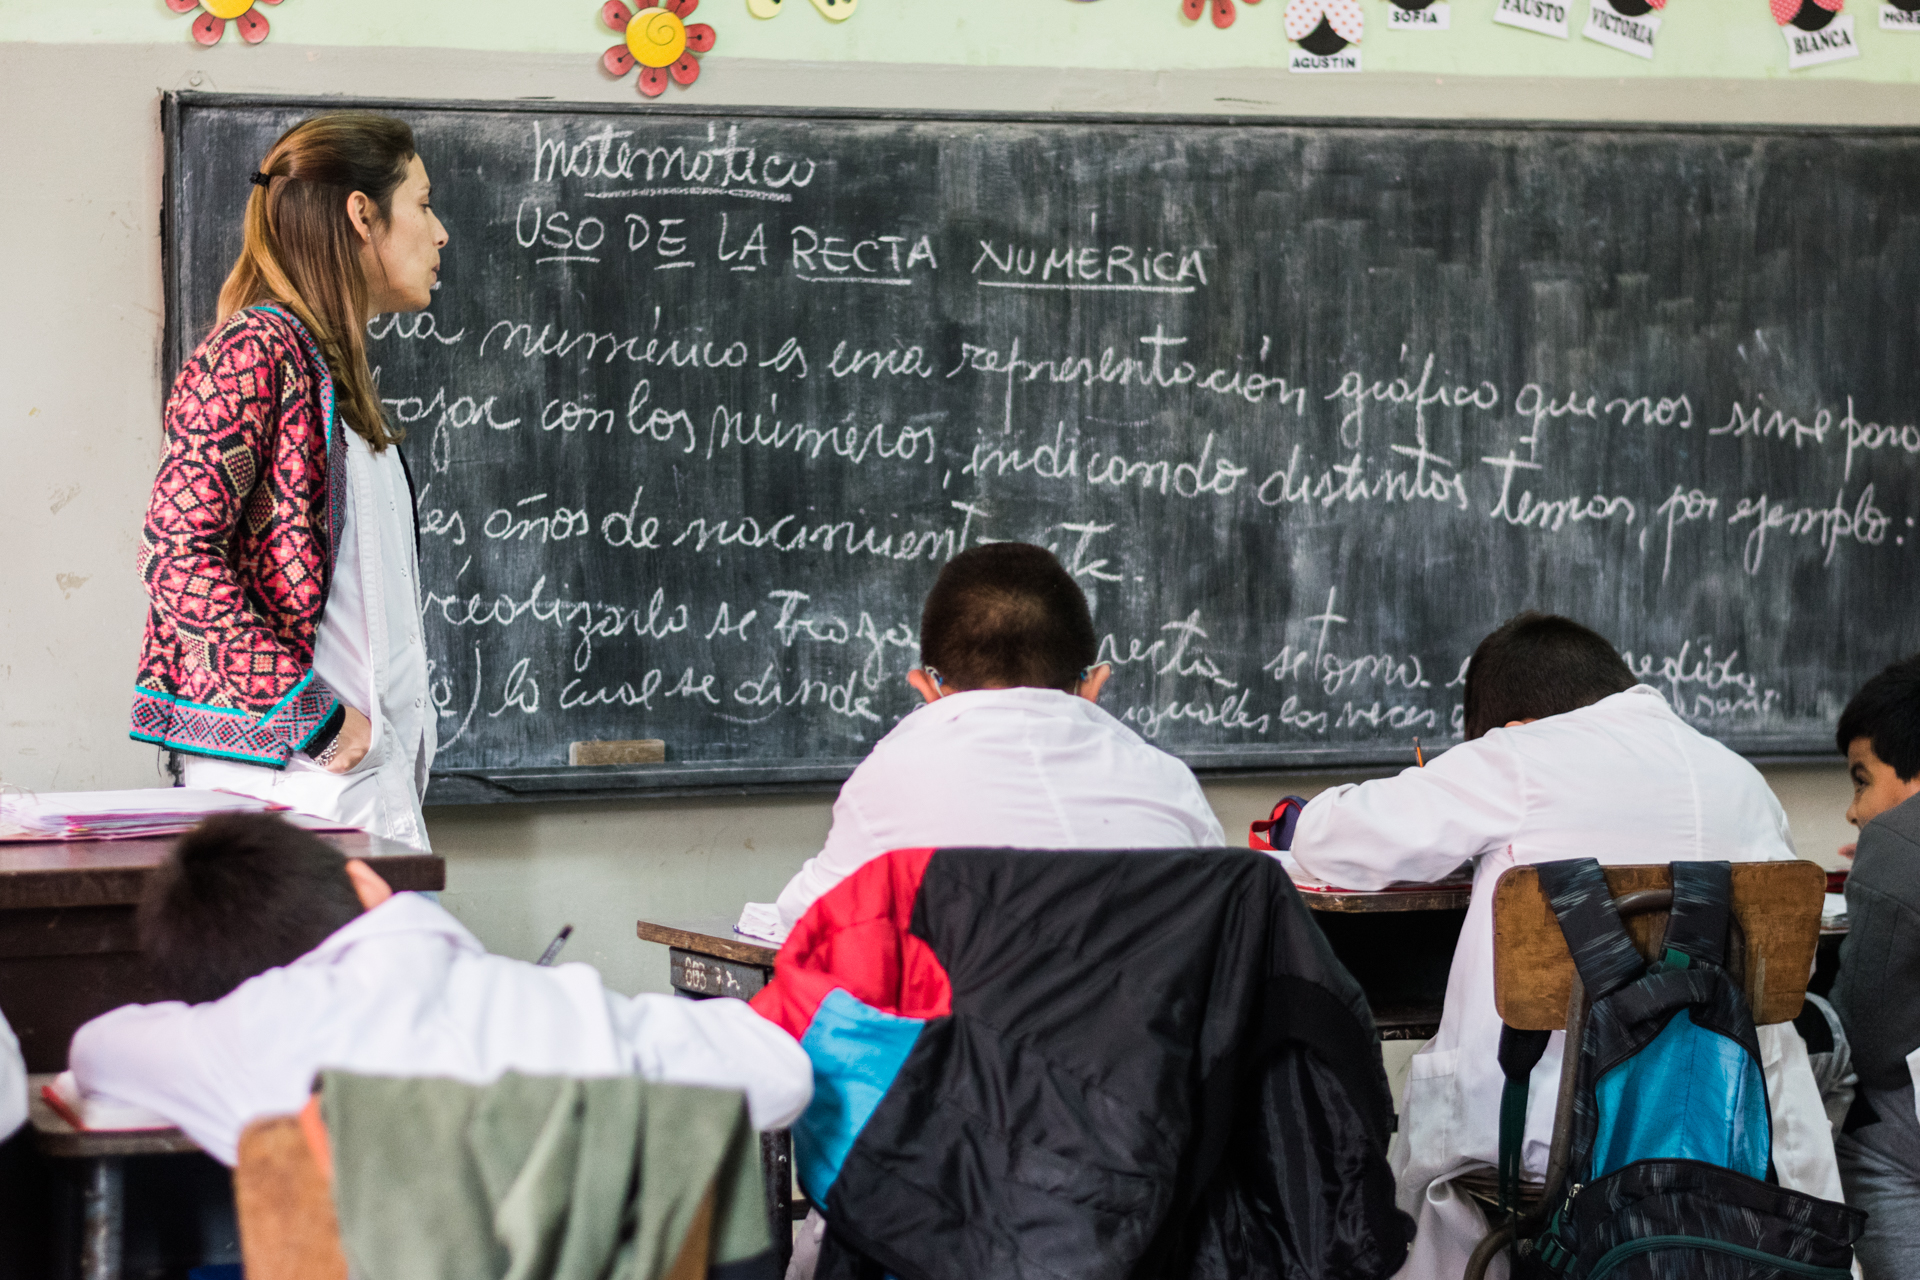 AGUSTIN
SOFIA
FAUSTO
VICTORIA
BIANCA
MORE
Matemática
USO DE LA RECTA NUMÉRICA
numérica es una representación gráfica que nos sirve para
con los números, indicando distintos temas, por ejemplo:
les años de nacimient etc.
realizarla se traza recta, se toma medida
) la cual se divide iguales las veces